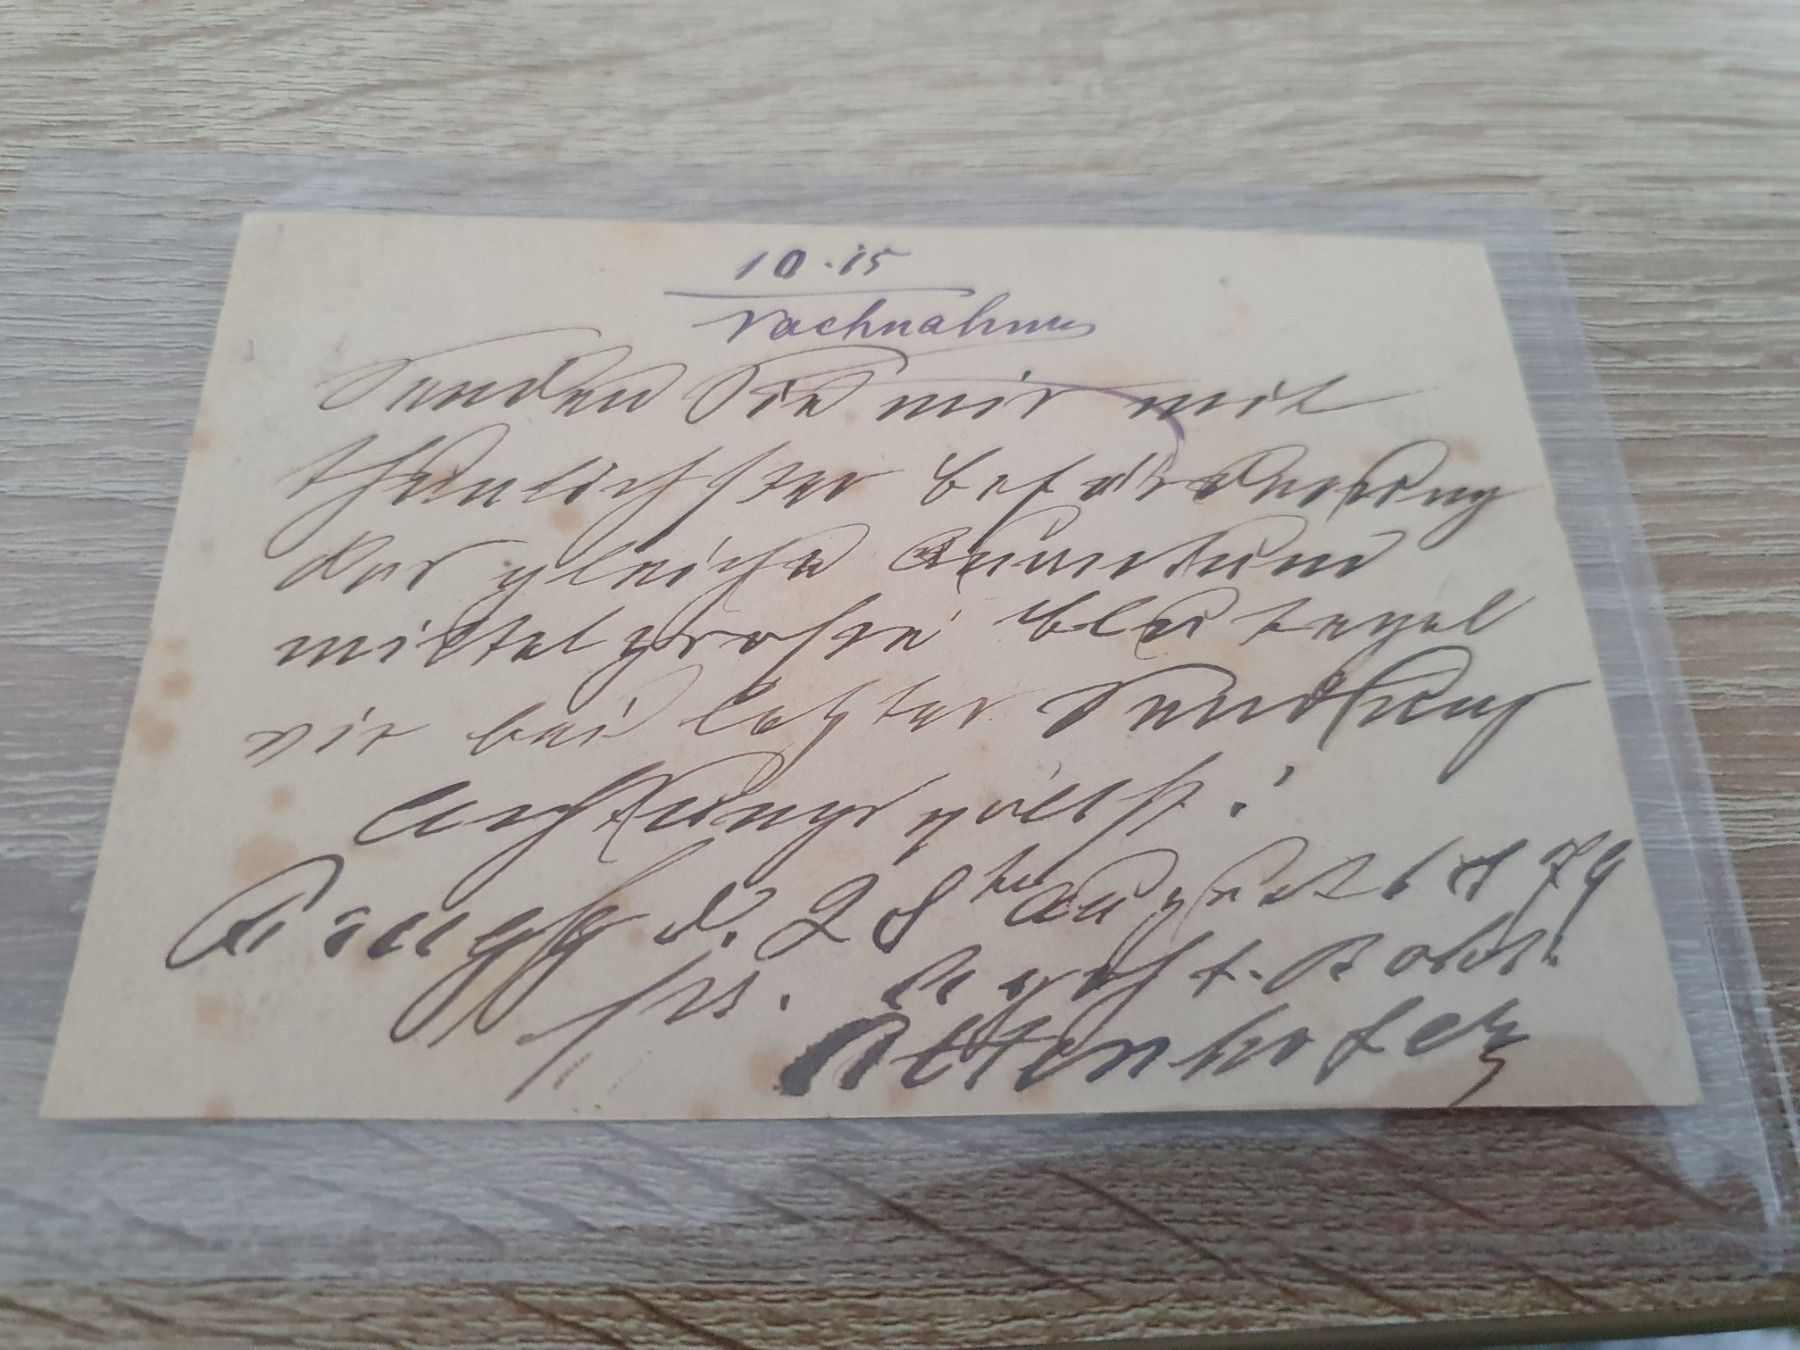 10.15
Nachnahme
Senden Sie mir mit
thunlichster Beförderung
das gleiche Quantum
mittelgroße Blutegel
wie bei letzter Sendung
Achtungsvollst!
d. 28ten August 1879
Apoth.
Altenhofer